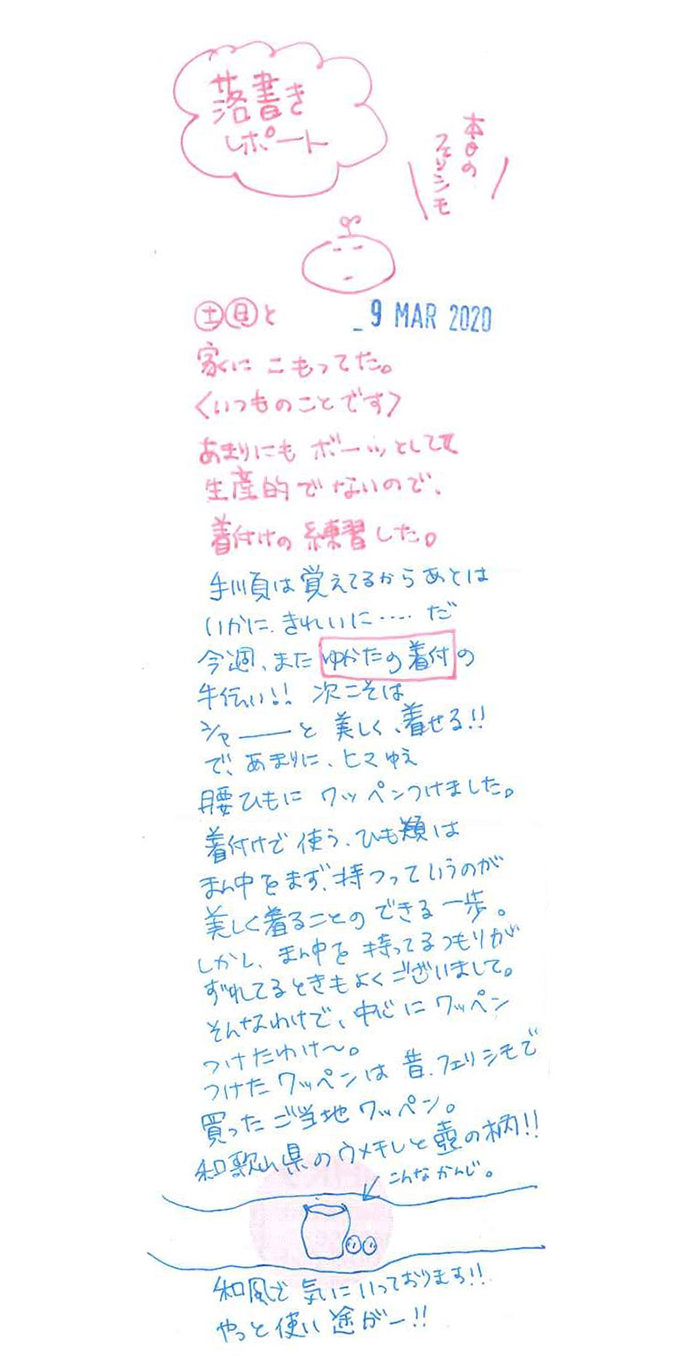 落書き
レポート
本日の
フェリシモ
土日と
9 MAR 2020
家にこもってた。
〈いつものことです〉
あまりにもボーッとしてて
生産的でないので、
着付けの練習した。
手順は覚えてるからあとは
いかに、きれいに……だ
今週、またゆかたの着付の
手伝い!! 次こそは
シャ――と美しく、着せる!!
で、あまりに、ヒマゆえ
腰ひもにワッペンつけました。
着付けで使う、ひも類は
まん中をまず、持つっていうのが
美しく着ることのできる一歩。
しかし、まん中を持ってるつもりが
ずれてるときもよくございまして。
そんなわけで、中心にワッペン
つけたわけ〜。
つけたワッペンは昔、フェリシモで
買ったご当地ワッペン。
和歌山県のウメボシと壺の柄!!
こんなかんじ。
和風で気にいっております!!
やっと使い途がー!!